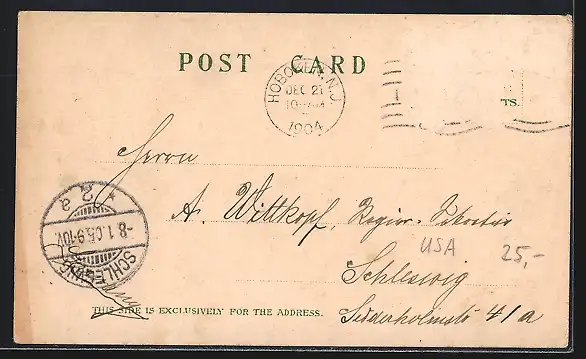 POST CARD
HOBOKEN, N.J.
DEC 21
10 AM
1904
TS.
Herrn
A. Wittkopf, Regier. Sekretär
Schleswig
41/a
SCHLESWIG
* 2 a
-8.1.05.9-10V.
USA
25,-
THIS SIDE IS EXCLUSIVELY FOR THE ADDRESS.